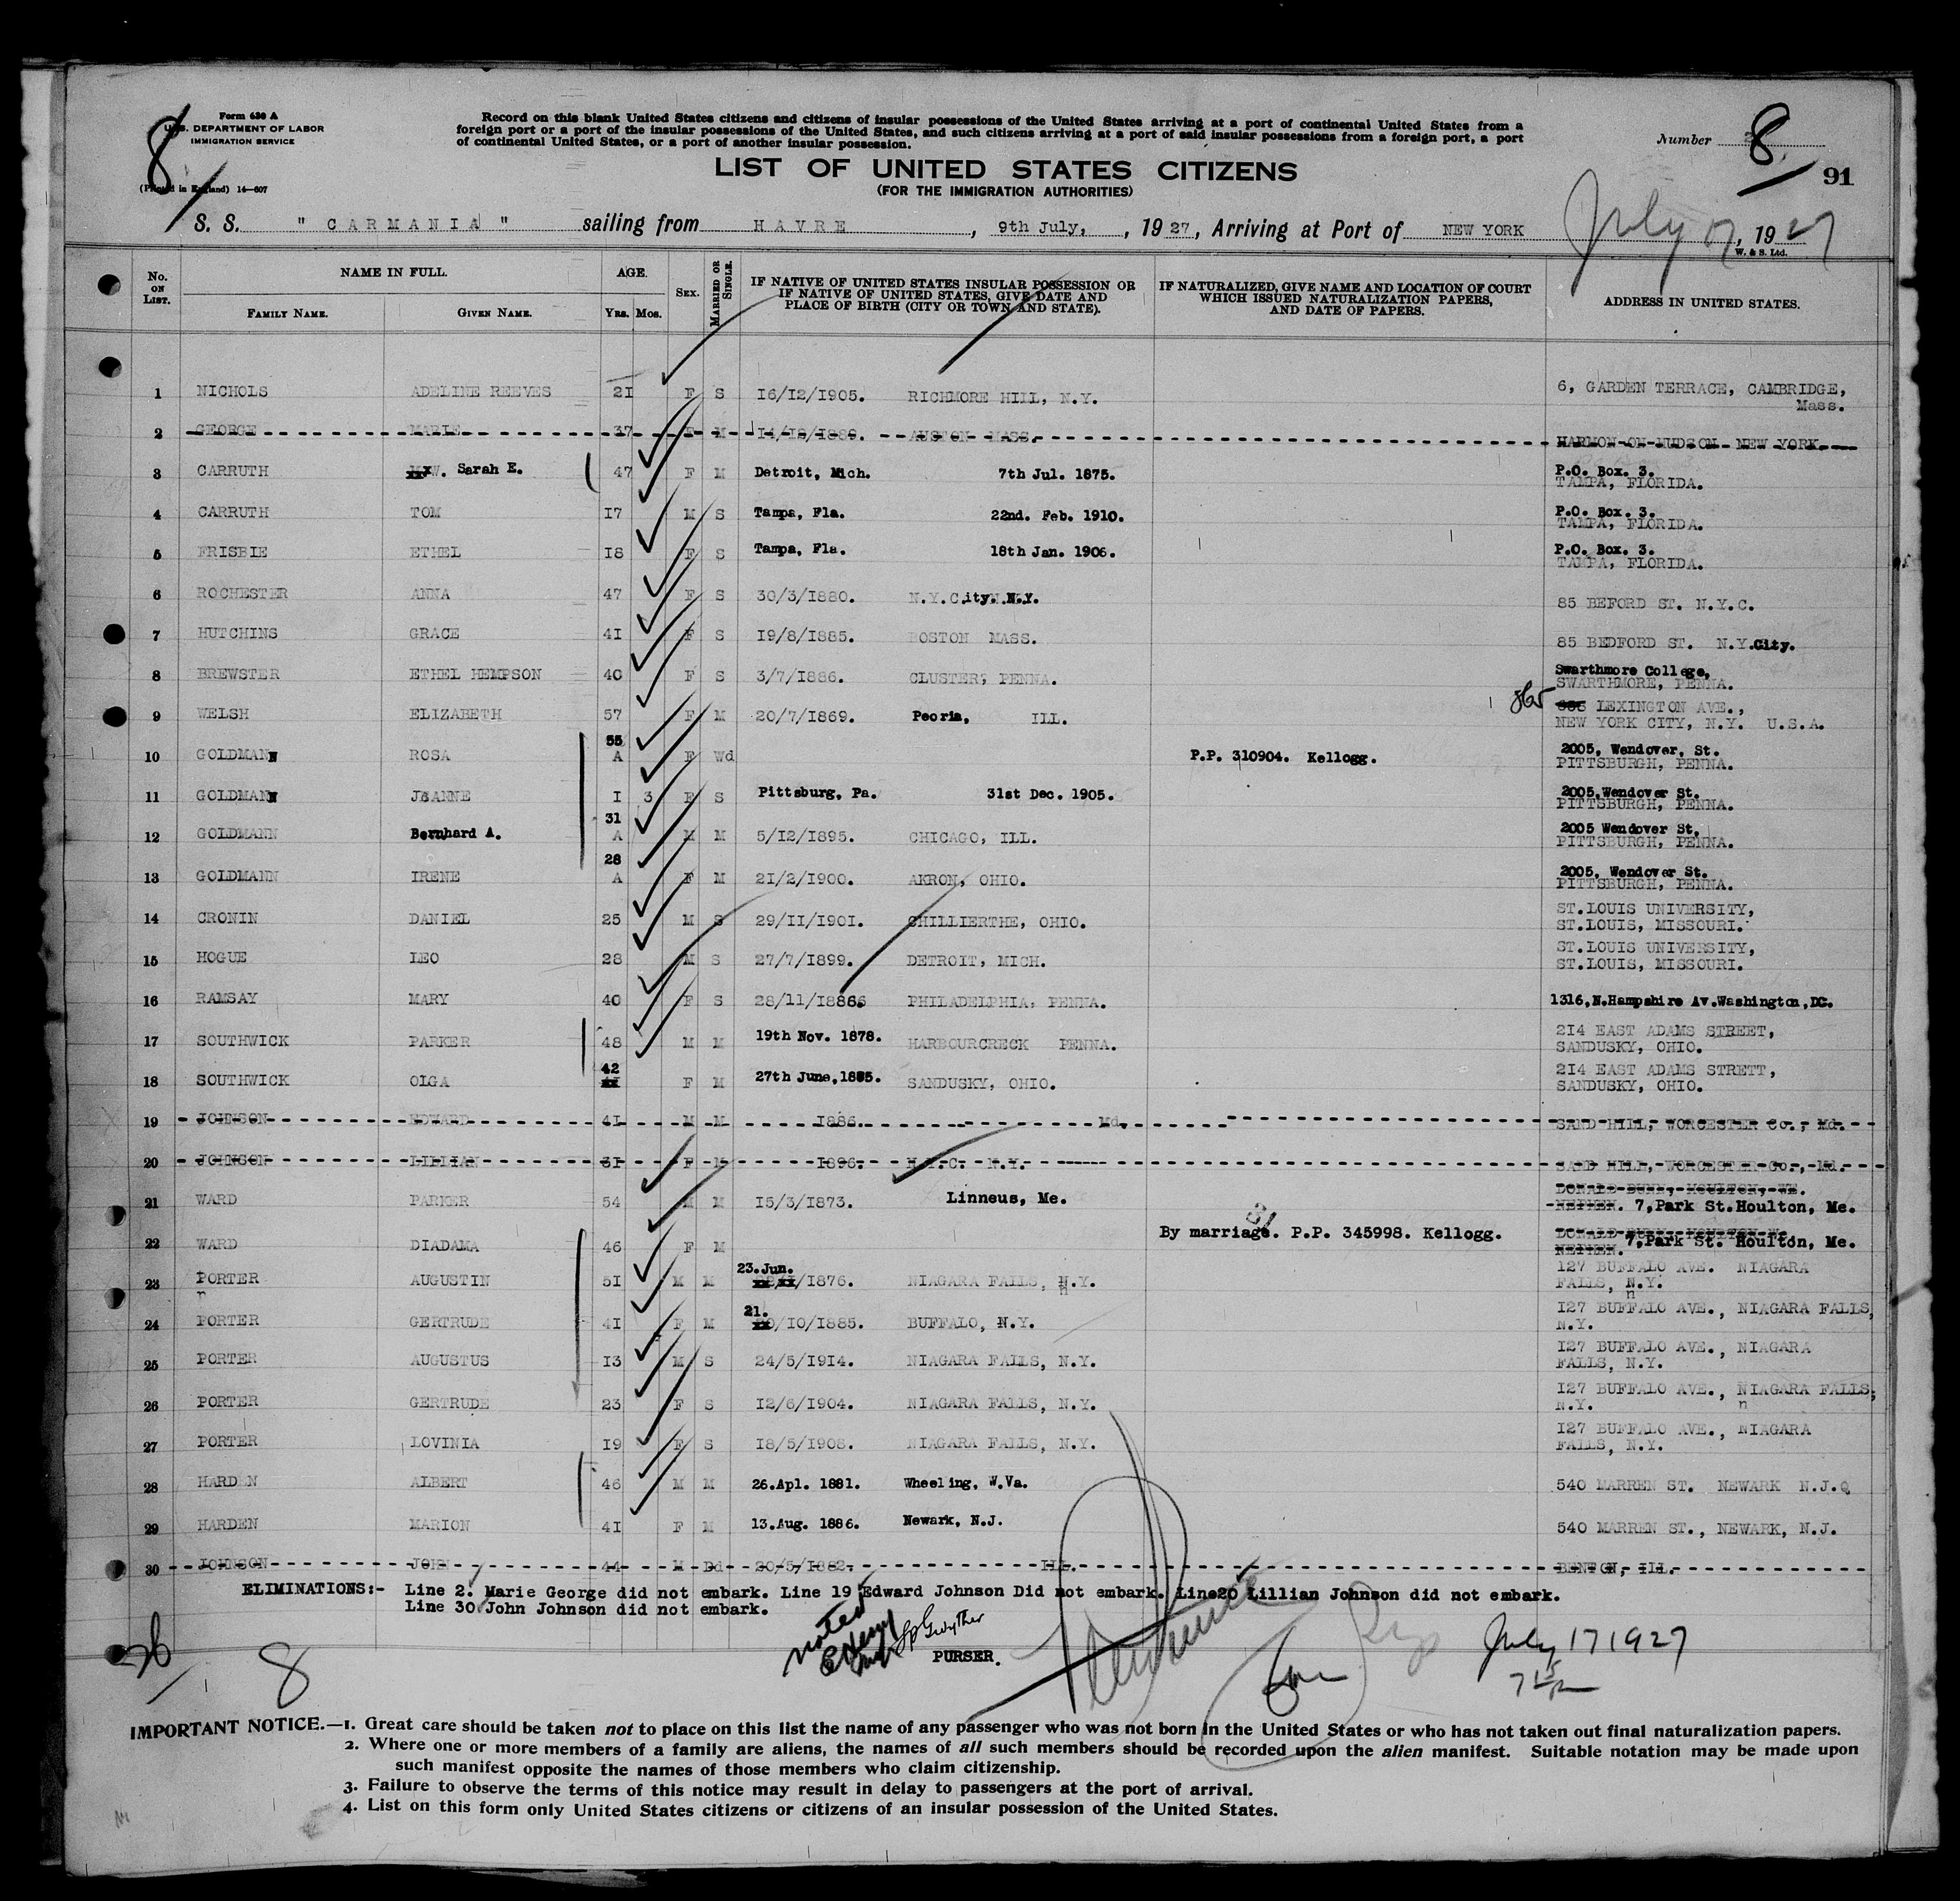 Form 630 A
U.S. DEPARTMENT OF LABOR
IMMIGRATION SERVICE
(Printed in England) 14—607
8
Record on this blank United States citizens and citizens of insular possessions of the United States arriving at a port of continental United States from a
foreign port or a port of the insular possessions of the United States, and such citizens arriving at a port of said insular possessions from a foreign port, a port
of continental United States, or a port of another insular possession.
Number 8
91
LIST OF UNITED STATES CITIZENS
(FOR THE IMMIGRATION AUTHORITIES)
S. S. " CARMANIA " sailing from HAVRE, 9th July, , 1927, Arriving at Port of NEW YORK July 17, 1927
W. & S. Ltd.
No. ON LIST. NAME IN FULL. FAMILY NAME. GIVEN NAME. AGE. Yrs. Mos. SEX. MARRIED OR SINGLE. IF NATIVE OF UNITED STATES INSULAR POSSESSION OR IF NATIVE OF UNITED STATES, GIVE DATE AND PLACE OF BIRTH (CITY OR TOWN AND STATE). IF NATURALIZED, GIVE NAME AND LOCATION OF COURT WHICH ISSUED NATURALIZATION PAPERS, AND DATE OF PAPERS. ADDRESS IN UNITED STATES.
1 NICHOLS ADELINE REEVES 21 F S 16/12/1905. RICHMORE HILL, N.Y. 6, GARDEN TERRACE, CAMBRIDGE, Mass.
2 GEORGE MARIE 37 F M 14/12/1889. AUSTON MASS. HARMON-ON-HUDSON NEW YORK
3 CARRUTH W. Sarah E. 47 F M Detroit, Mich. 7th Jul. 1875. P.O. Box. 3. TAMPA, FLORIDA.
4 CARRUTH TOM 17 M S Tampa, Fla. 22nd. Feb. 1910. P.O. Box. 3. TAMPA, FLORIDA.
5 FRISBIE ETHEL 18 F S Tampa, Fla. 18th Jan. 1906. P.O. Box. 3. TAMPA, FLORIDA.
6 ROCHESTER ANNA 47 F S 30/3/1880. N.Y.City. N.Y. 85 BEFORD ST. N.Y.C.
7 HUTCHINS GRACE 41 F S 19/8/1885. BOSTON MASS. 85 BEDFORD ST. N.Y.City.
8 BREWSTER ETHEL HEMPSON 40 F S 3/7/1886. CLUSTER, PENNA. Swarthmore College, SWARTHMORE, PENNA.
9 WELSH ELIZABETH 57 F M 20/7/1869. Peoria, ILL. 865 LEXINGTON AVE., NEW YORK CITY, N.Y. U.S.A.
10 GOLDMANN ROSA 55 A F Wd P.P. 310904. Kellogg. 2005, Wendover, St. PITTSBURGH, PENNA.
11 GOLDMANN JEANNE 1 3 F S Pittsburg, Pa. 31st Dec. 1905. 2005,Wendover St. PITTSBURGH, PENNA.
12 GOLDMANN Bernhard A. 31 A M M 5/12/1895. CHICAGO, ILL. 2005 Wendover St, PITTSBURGH, PENNA.
13 GOLDMANN IRENE 28 A F M 21/2/1900. AKRON, OHIO. 2005, Wendover St. PITTSBURGH, PENNA.
14 CRONIN DANIEL 25 M S 29/11/1901. CHILLIERTHE, OHIO. ST.LOUIS UNIVERSITY, ST.LOUIS, MISSOURI.
15 HOGUE LEO 28 M S 27/7/1899. DETROIT, MICH. ST.LOUIS UNIVERSITY, ST.LOUIS, MISSOURI.
16 RAMSAY MARY 40 F S 28/11/1886. PHILADELPHIA, PENNA. 1316,N.Hampshire Av.Washington,DC.
17 SOUTHWICK PARKER 48 M M 19th Nov. 1878. HARBOURCRECK PENNA. 214 EAST ADAMS STREET, SANDUSKY, OHIO.
18 SOUTHWICK OLGA 42 F M 27th June,1885. SANDUSKY, OHIO. 214 EAST ADAMS STRETT, SANDUSKY, OHIO.
19 JOHNSON EDWARD 41 M M 1886. Md. SAND HILL, WORCESTER Co., Md.
20 JOHNSON LILLIAN 31 F M 1896. N.Y.C. N.Y. SAND HILL, WORCESTER Co., Md.
21 WARD PARKER 54 M M 15/3/1873. Linneus, Me. DONALD DUNN, HOULTON, ME. NEPHEW. 7,Park St.Houlton, Me.
22 WARD DIADAMA 46 F M By marriage. P.P. 345998. Kellogg. DONALD DUNN, HOULTON Me. NEPHEW. 7,Park St. Houlton, Me.
23 PORTER AUGUSTIN 51 M M 23.Jun. /1876. NIAGARA FALLS, N.Y. 127 BUFFALO AVE. NIAGARA FALLS, N.Y.
24 PORTER GERTRUDE 41 F M 21. /10/1885. BUFFALO, N.Y. 127 BUFFALO AVE., NIAGARA FALLS, N.Y.
25 PORTER AUGUSTUS 13 M S 24/5/1914. NIAGARA FALLS, N.Y. 127 BUFFALO AVE., NIAGARA FALLS, N.Y.
26 PORTER GERTRUDE 23 F S 12/6/1904. NIAGARA FALLS, N.Y. 127 BUFFALO AVE., NIAGARA FALLS, N.Y.
27 PORTER LOVINIA 19 F S 18/5/1908. NIAGARA FALLS, N.Y. 127 BUFFALO AVE., NIAGARA FALLS, N.Y.
28 HARDEN ALBERT 46 M M 26.Apl. 1881. Wheeling, W.Va. 540 MARREN ST. NEWARK N.J.
29 HARDEN MARION 41 F M 13.Aug. 1886. Newark, N.J. 540 MARREN ST., NEWARK, N.J.
30 JOHNSON JOHN 44 M Dd 20/5/1882. ILL. BENTON, ILL.
ELIMINATIONS:- Line 2. Marie George did not embark. Line 19 Edward Johnson Did not embark. Line20 Lillian Johnson did not embark.
Line 30 John Johnson did not embark.
noted
PURSER.
26
8
July 17 1927
IMPORTANT NOTICE.—1. Great care should be taken not to place on this list the name of any passenger who was not born in the United States or who has not taken out final naturalization papers.
2. Where one or more members of a family are aliens, the names of all such members should be recorded upon the alien manifest. Suitable notation may be made upon
such manifest opposite the names of those members who claim citizenship.
3. Failure to observe the terms of this notice may result in delay to passengers at the port of arrival.
4. List on this form only United States citizens or citizens of an insular possession of the United States.